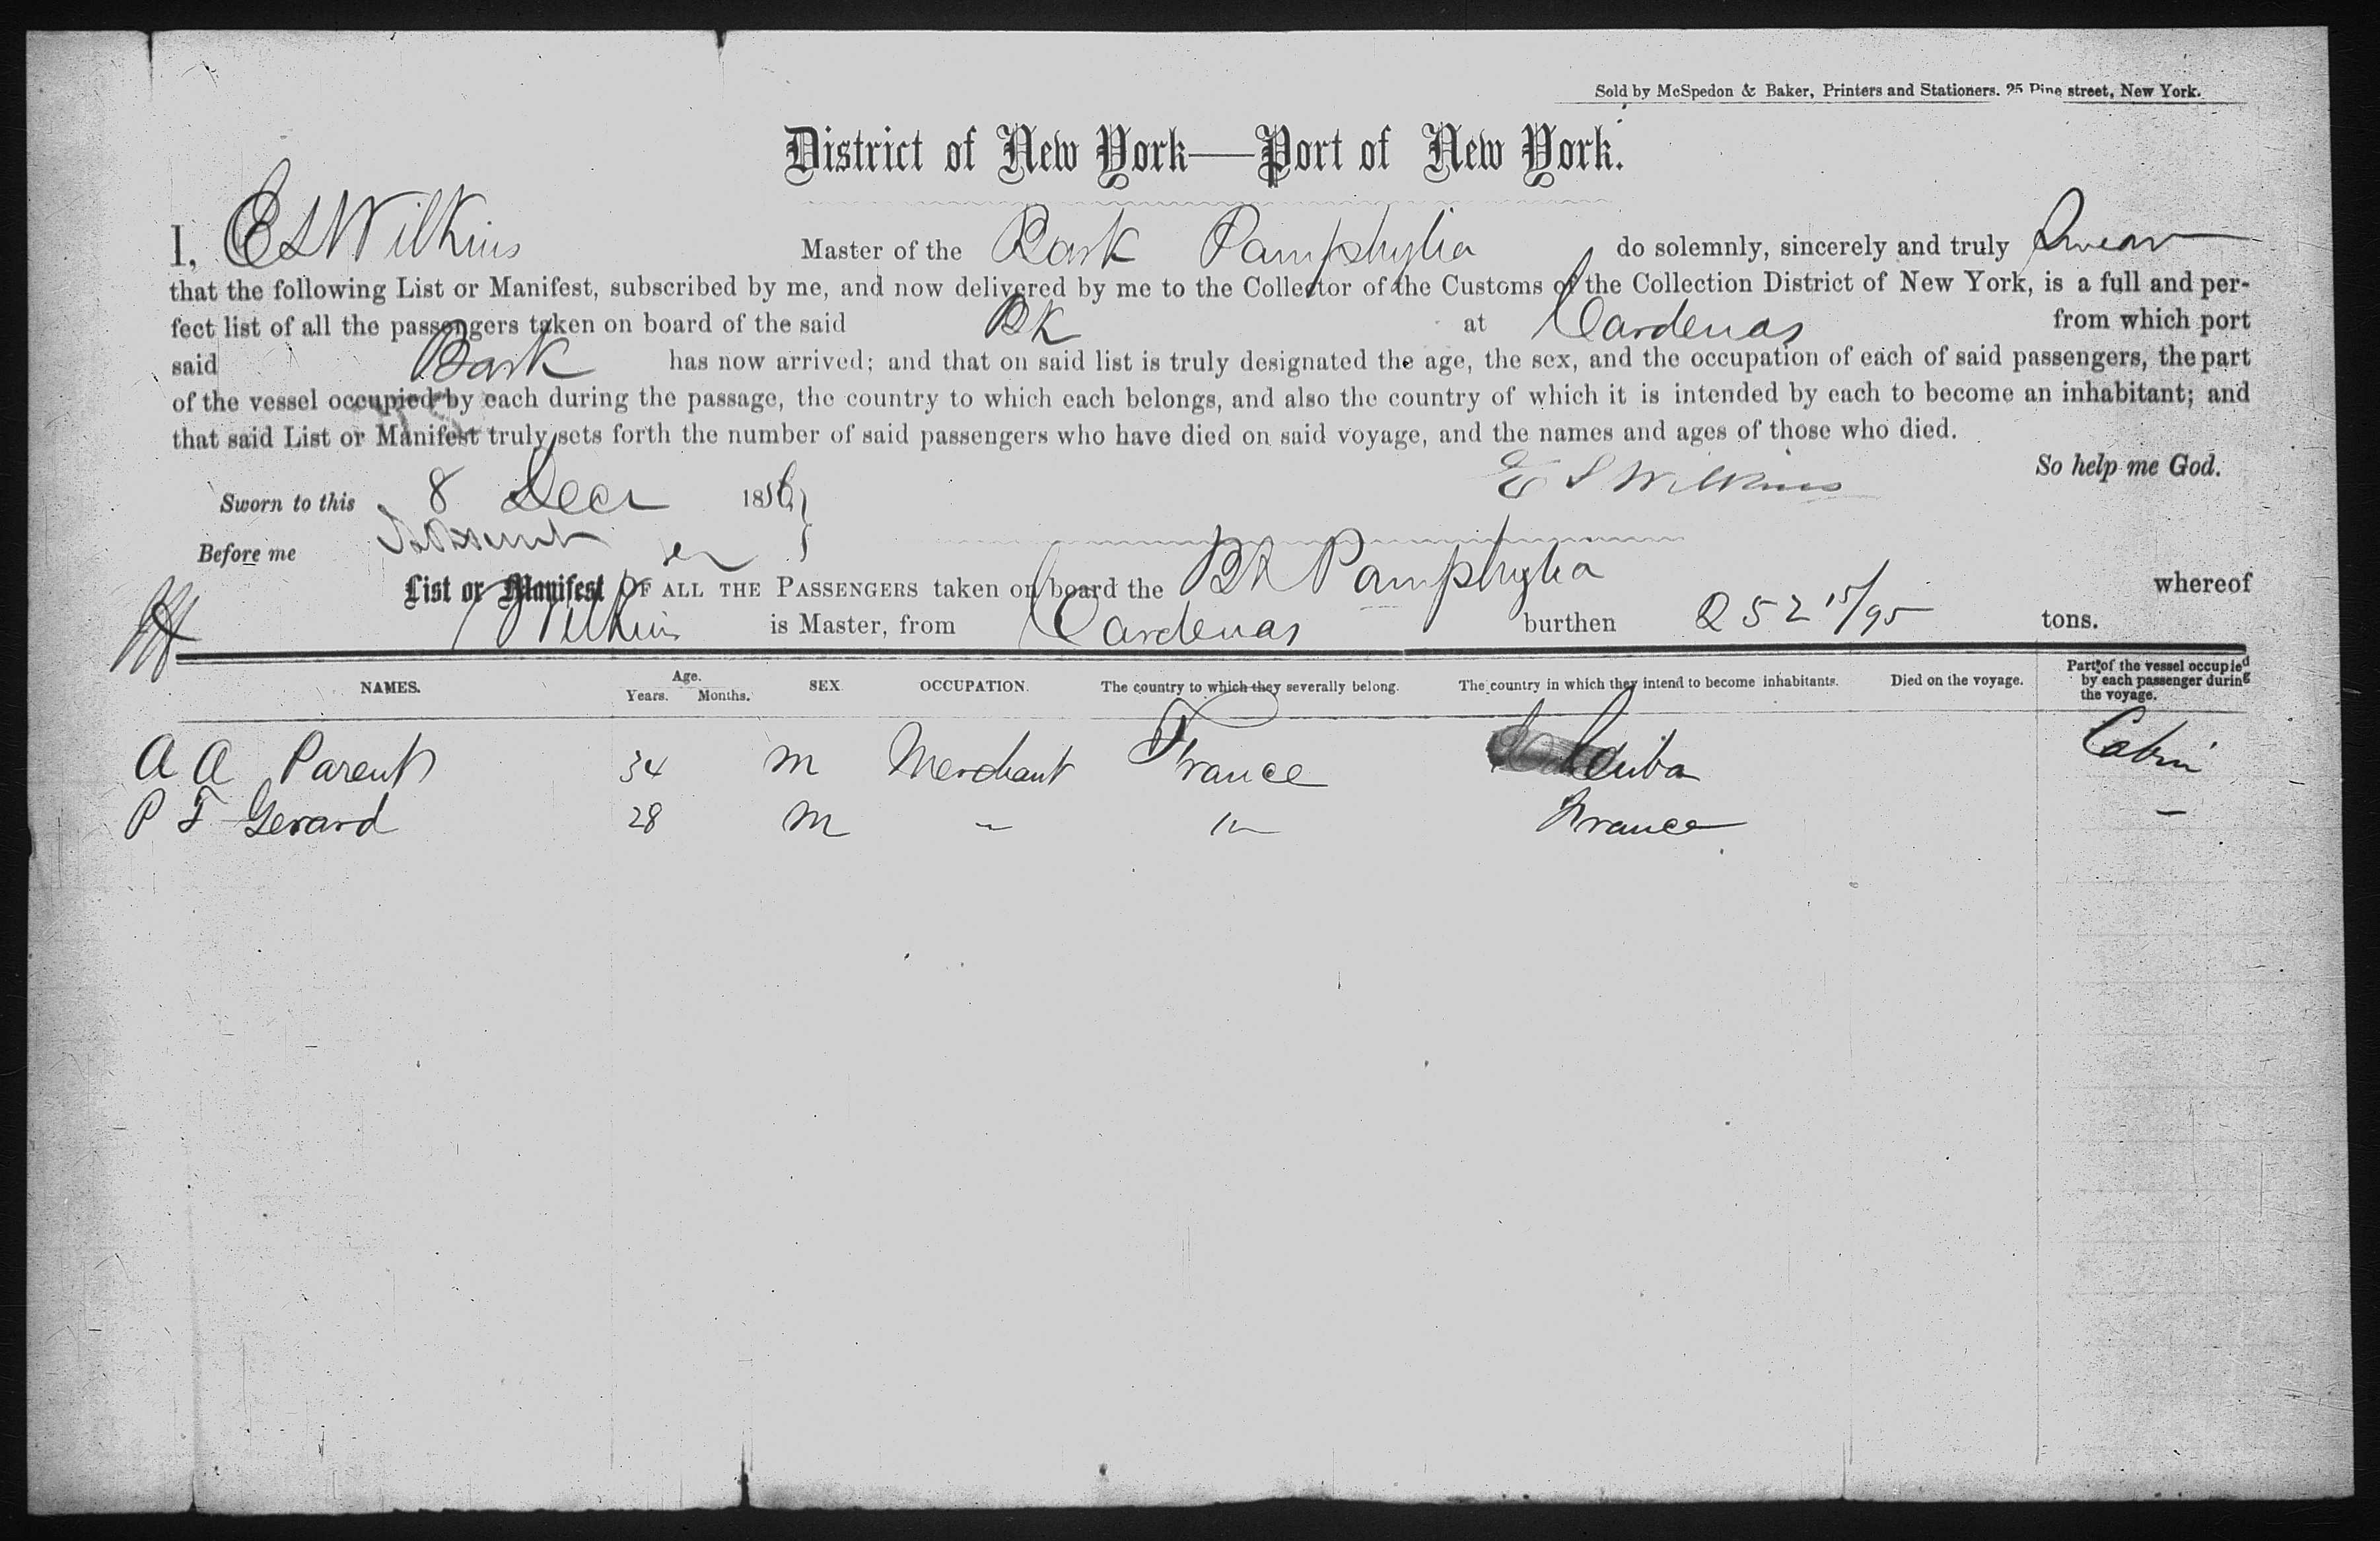 Sold by McSpedon & Baker, Printers and Stationers. 25 Pine street, New York.
District of New York—Port of New York.
I, E S Wilkins Master of the Bark Pamphylia do solemnly, sincerely and truly Swear
that the following List or Manifest, subscribed by me, and now delivered by me to the Collector of the Customs of the Collection District of New York, is a full and per-
fect list of all the passengers taken on board of the said Bk at Cardenas from which port
said Bark has now arrived; and that on said list is truly designated the age, the sex, and the occupation of each of said passengers, the part
of the vessel occupied by each during the passage, the country to which each belongs, and also the country of which it is intended by each to become an inhabitant; and
that said List or Manifest truly sets forth the number of said passengers who have died on said voyage, and the names and ages of those who died.
So help me God.
Sworn to this 8 Decr 1856 E S Wilkins
Before me
List or Manifest OF ALL THE PASSENGERS taken on board the Bk Pamphylia whereof
Wilkins is Master, from Cardenas burthen 252 15/95 tons.
NAMES. Age. Years. Months. SEX OCCUPATION. The country to which they severally belong. The country in which they intend to become inhabitants. Died on the voyage. Part of the vessel occupied by each passenger during the voyage.
A A Parent 34 M Merchant France Cuba Cabin
P F Gerard 28 M " " France "